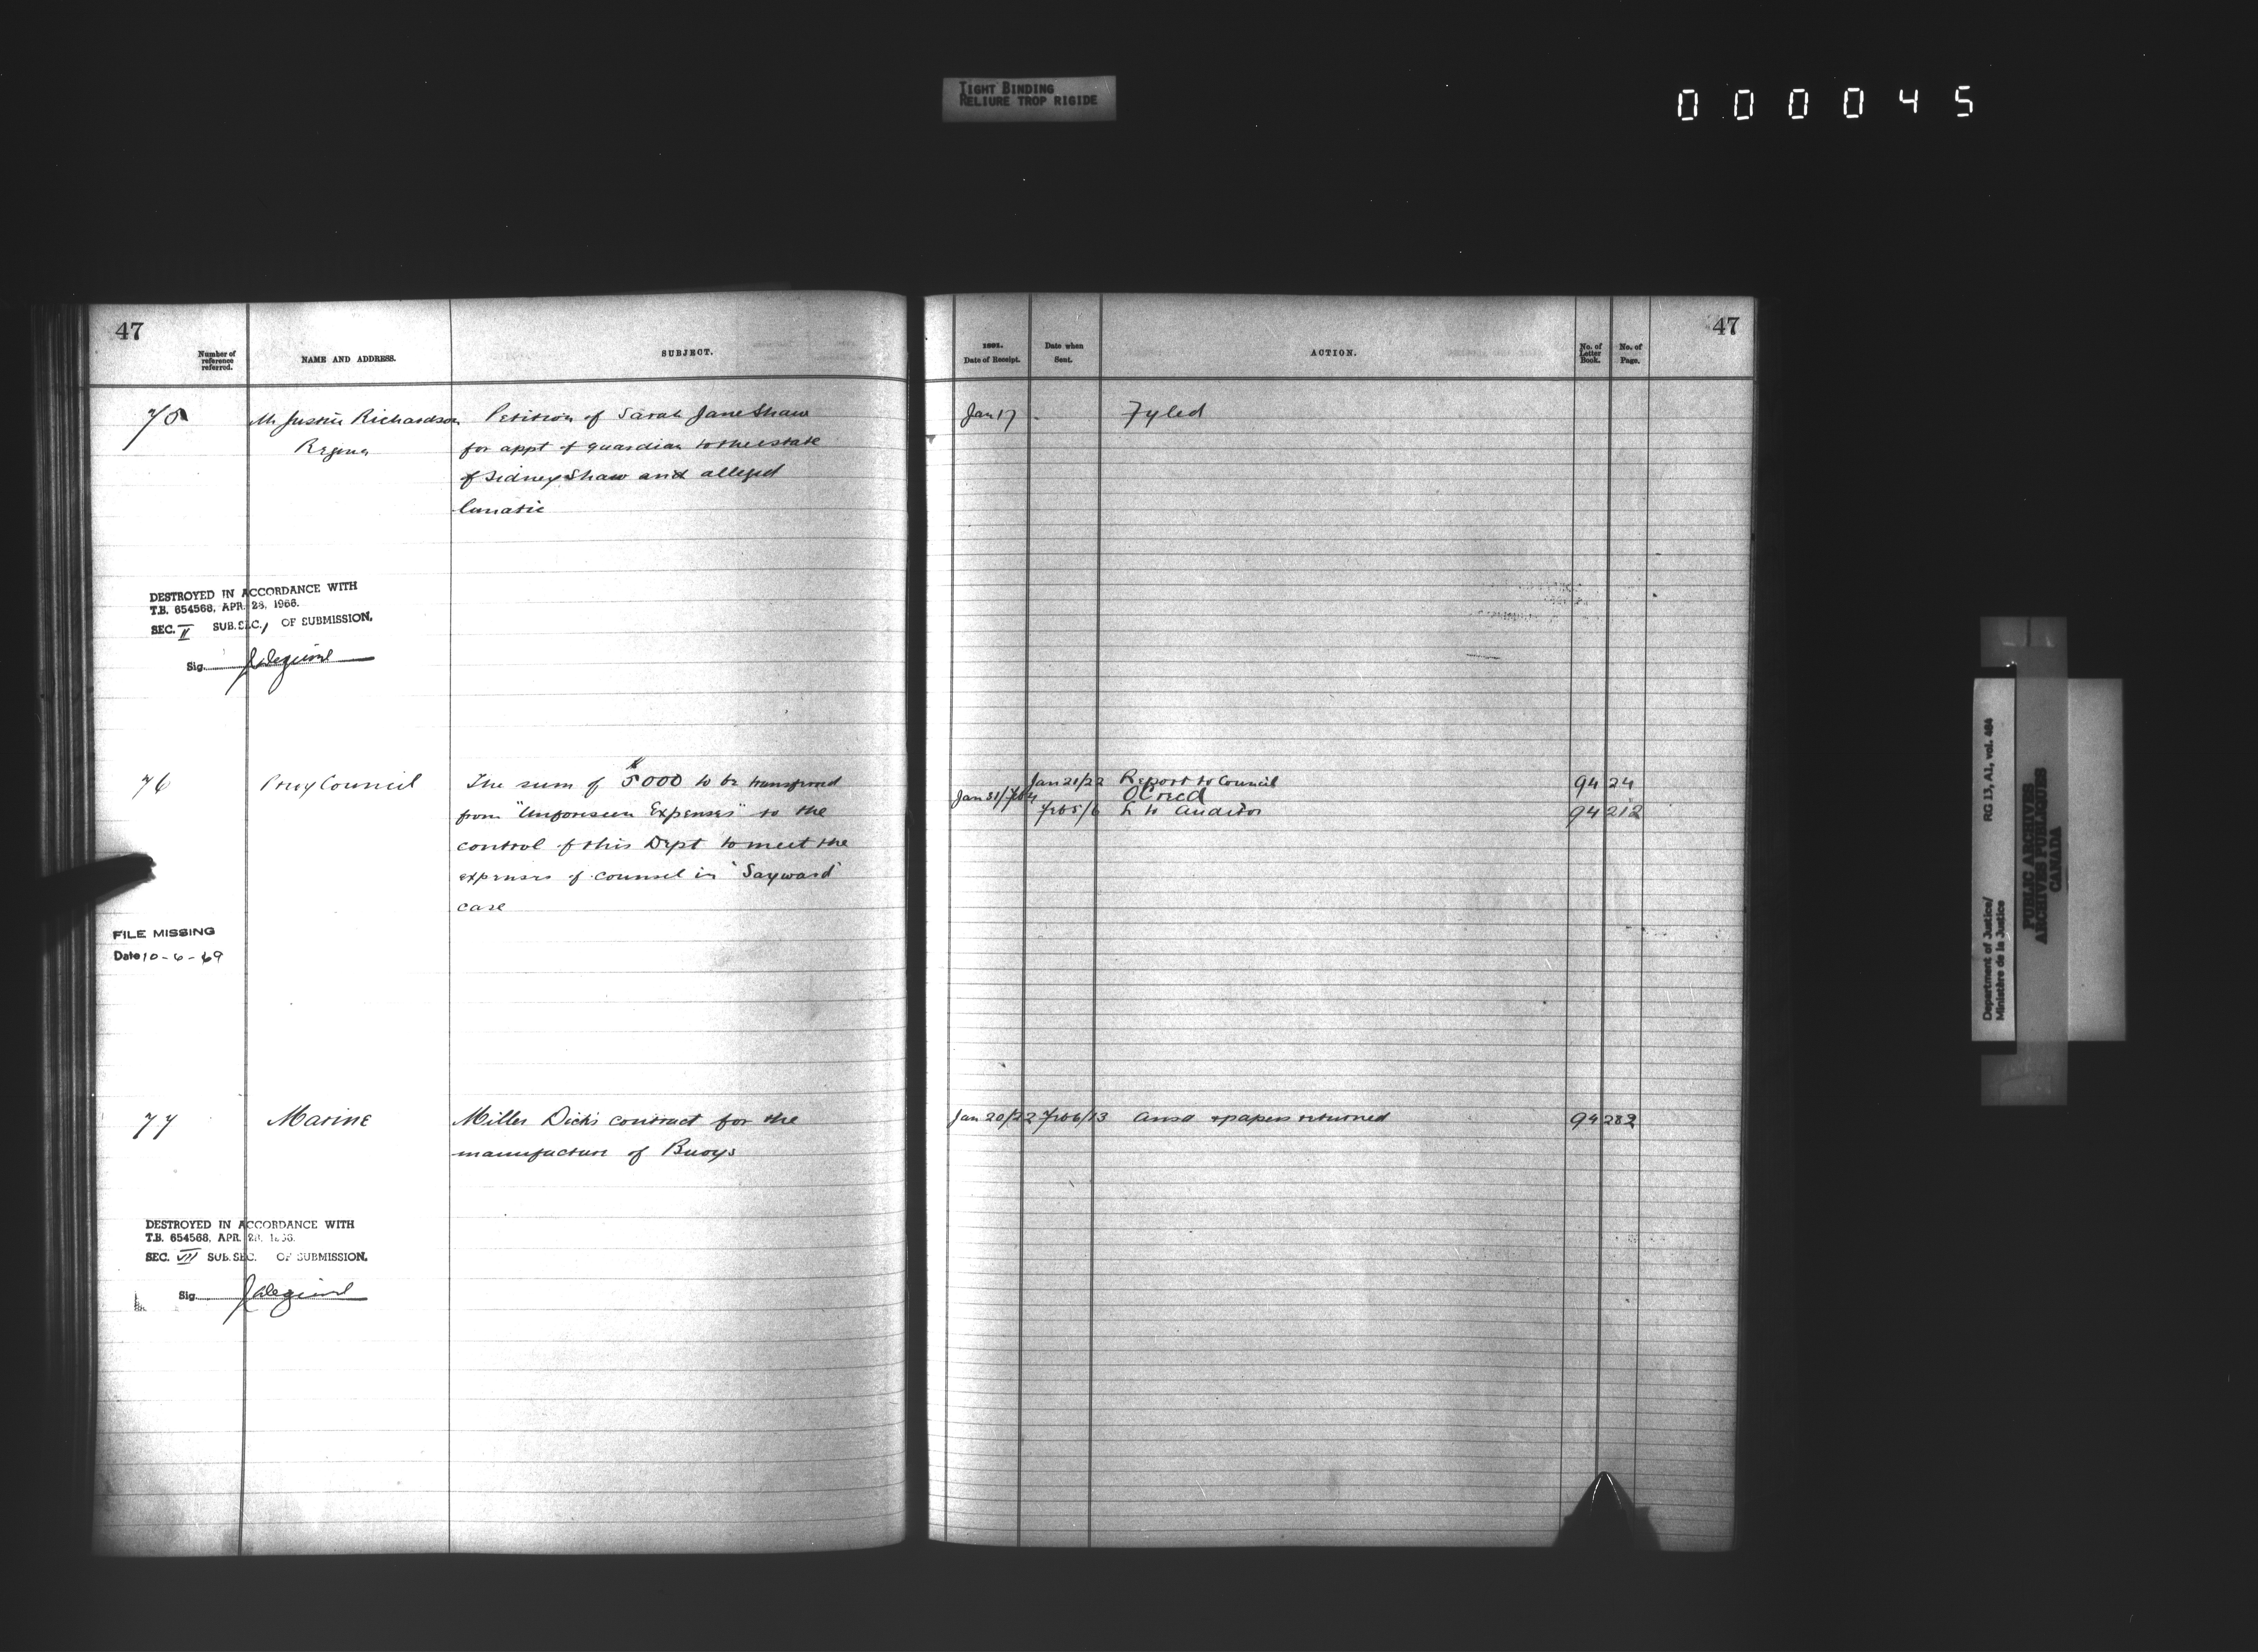 TIGHT BINDING
RELIURE TROP RIGIDE
000045
47
Number of
reference
referred.
NAME AND ADDRESS.
SUBJECT.
75 Mr Justice Richardson Petition of Sarah Jane Shaw
Regina for appt of guardian to the estate
of Sidney Shaw and alleged
lunatic
DESTROYED IN ACCORDANCE WITH
T.B. 654568, APR. 28, 1966.
SEC. II SUB.SEC. 1 OF SUBMISSION.
Sig.
76 Privy Council The sum of $5000 to be transferred
from "Unforeseen Expenses" to the
control of this Dept to meet the
expenses of counsel in "Sayward"
case
FILE MISSING
Date 10-6-69
77 Marine Miller Dick's contract for the
manufacture of Buoys
DESTROYED IN ACCORDANCE WITH
T.B. 654568, APR. 28, 1966.
SEC. VII SUB.SEC. OF SUBMISSION.
Sig.
47
1891.
Date of Receipt.
Date when
Sent.
ACTION.
No. of
Letter
Book.
No. of
Page.
Jan 17 - Fyled
Jan 21/22 Report to Council 94 24
Jan 31/Feb 4 OC recd
Feb 5/6 L to Auditor 94 212
Jan 20/22 Feb 6/13 Ansd & papers returned 94 282
Department of Justice/
Ministère de la Justice
RG 13, A1, vol. 484
PUBLIC ARCHIVES
ARCHIVES PUBLIQUES
CANADA